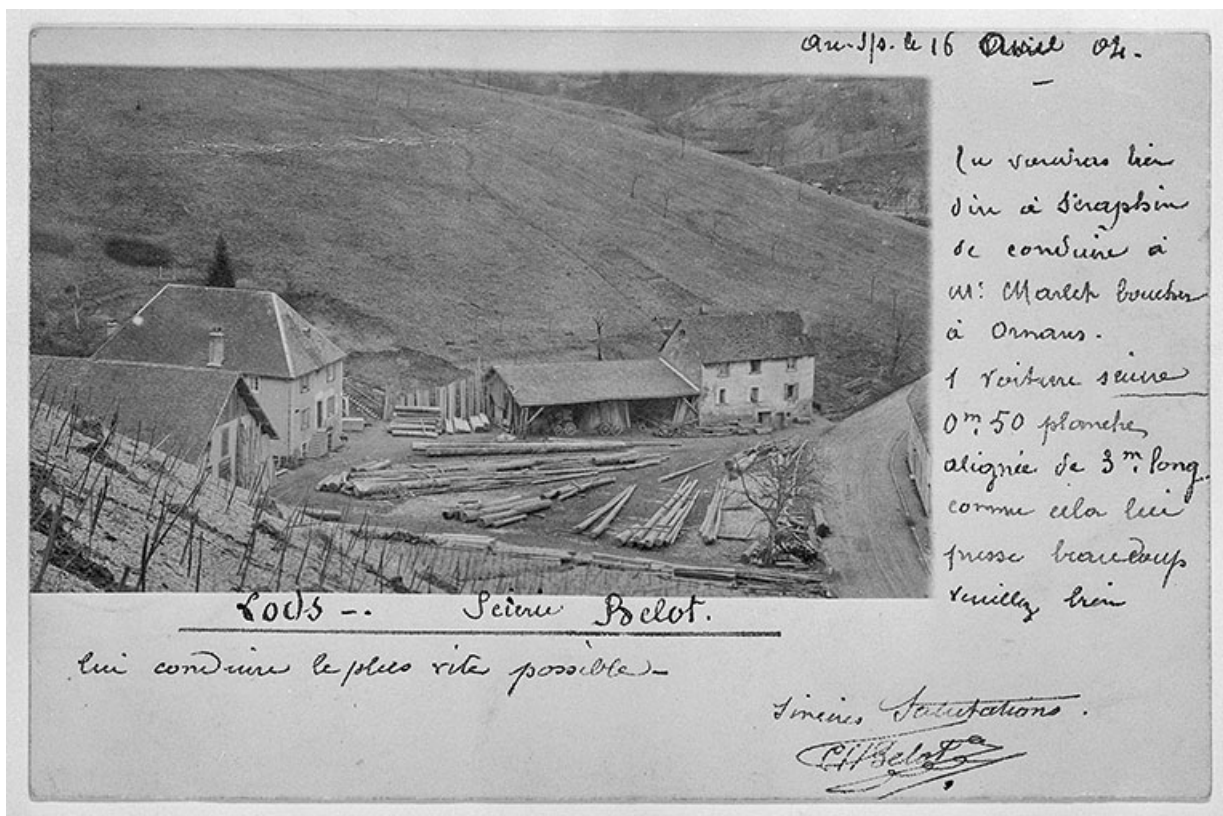 le 16 Avril 04.
Tu voudras bien
dire à Séraphin
de conduire à
Mr. Marlet boucher
à Ornans.
1 voiture sciure
0m,50 planche
alignée de 3m. long.
comme cela lui
presse beaucoup
Veuillez bien
LODS -. Scierie Belot.
lui conduire le plus vite possible -
Sincères Salutations.
CH Belot